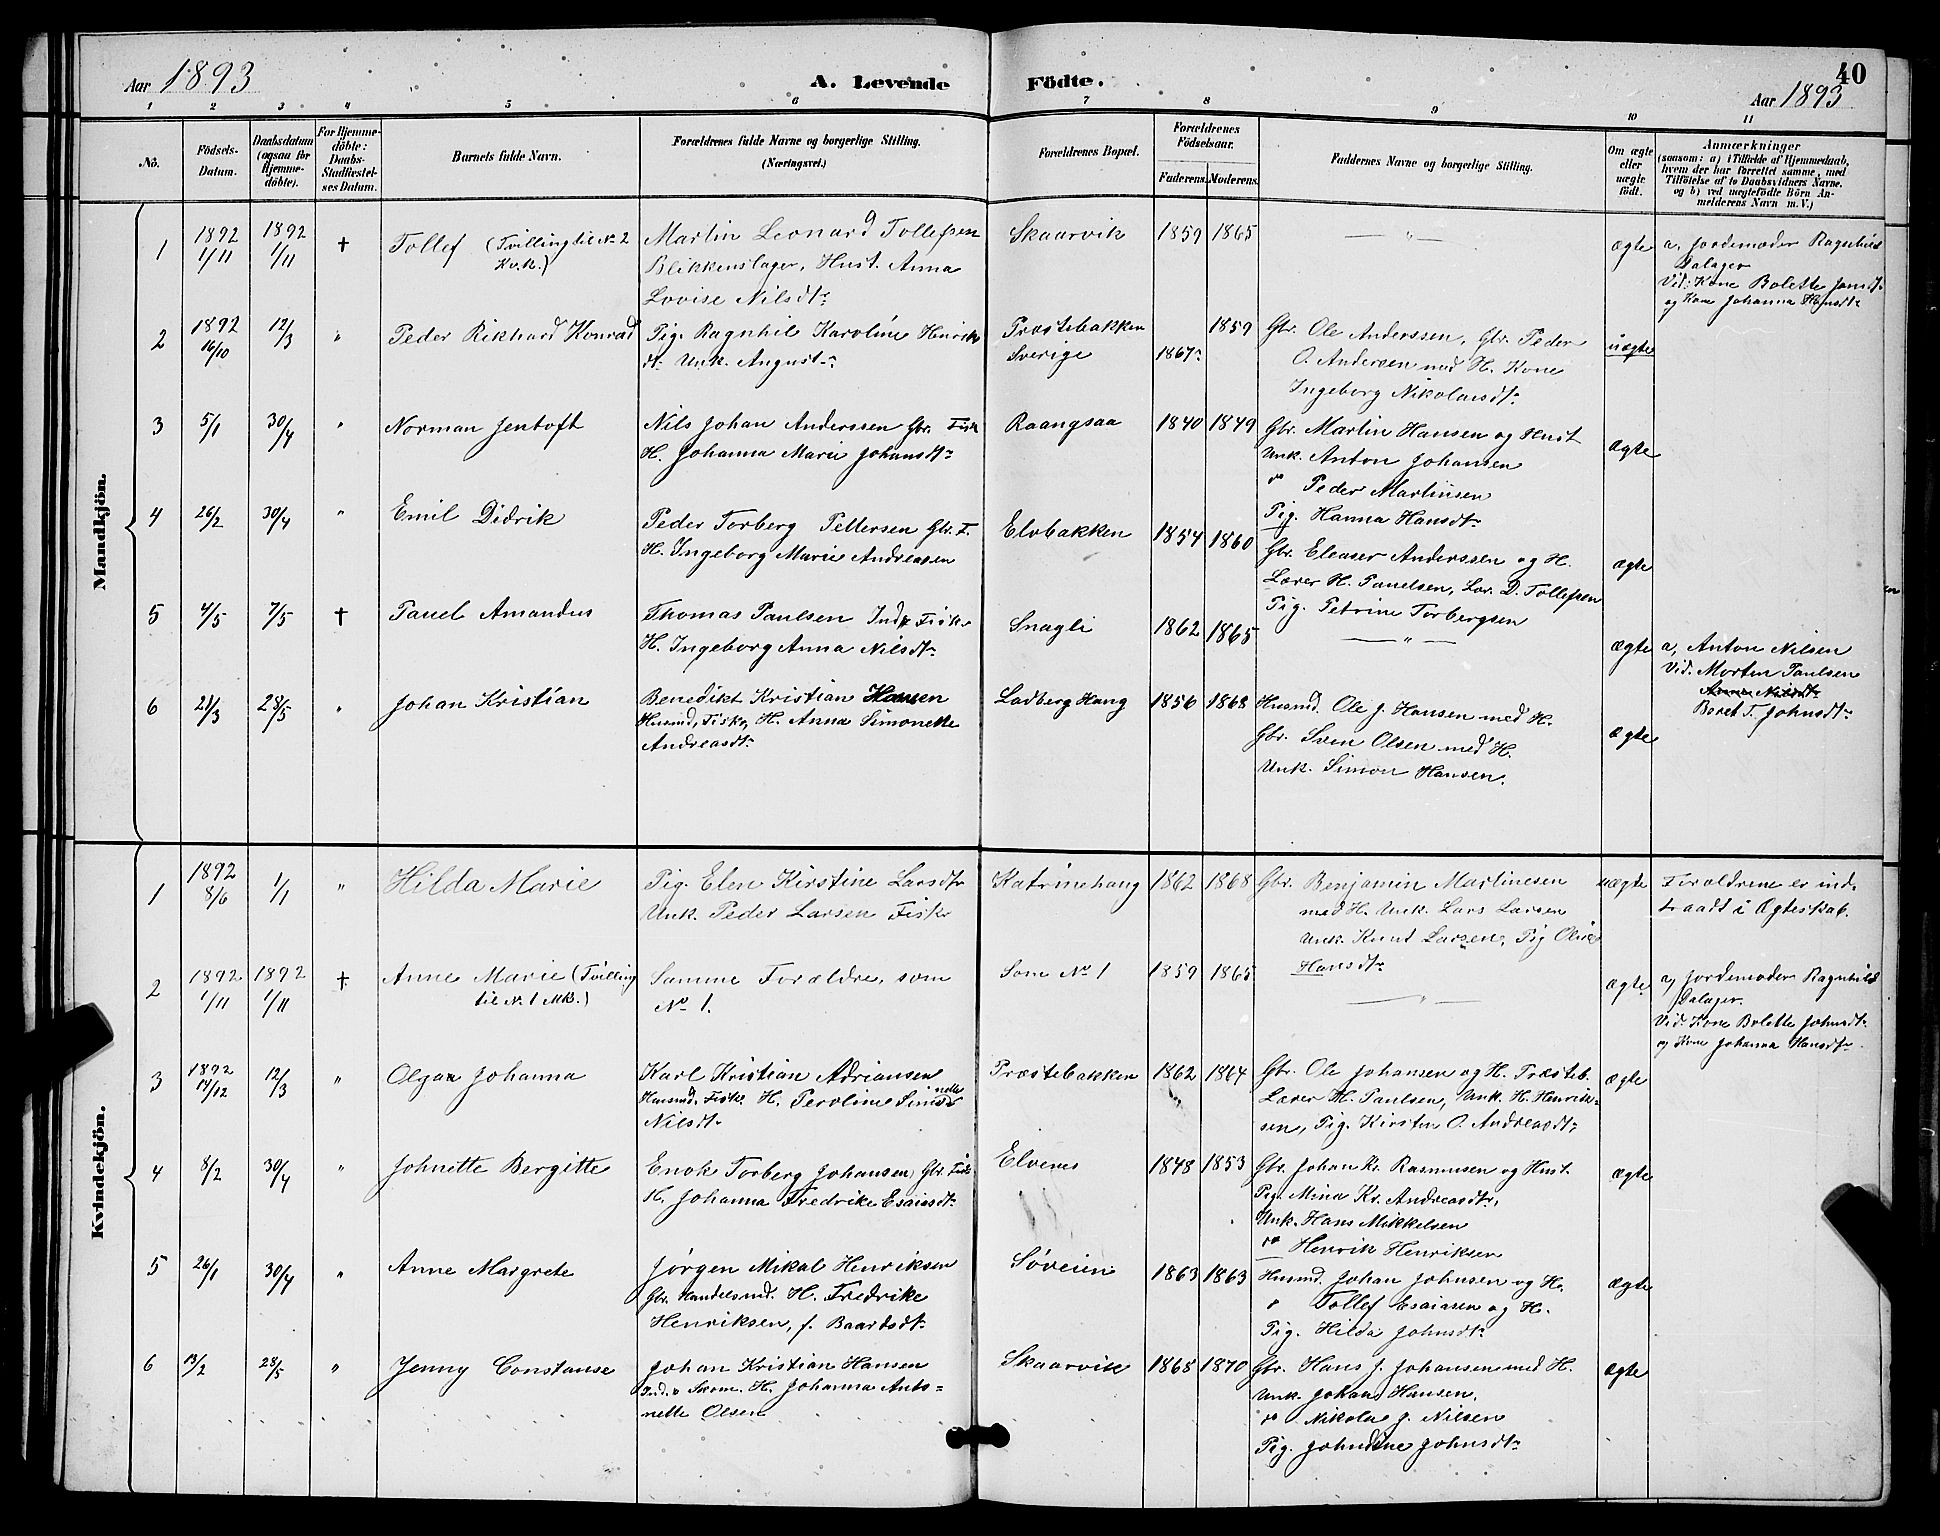 Aar 1893
A. Levende Födte.
40
Aar 1893
1 2 3 4 5 6 7 8 9 10 11
No.
Födsels-Datum.
Daabsdatum (ogsaa for Hjemme-döbte).
For Hjemme-döbte: Daabs-Stadfæstel-ses Datum.
Barnets fulde Navn.
Forældrenes fulde Navne og borgerlige Stilling. (Næringsvei.)
Forældrenes Bopæl.
Forældrenes Födselsaar.
Faderens. Moderens.
Faddernes Navne og borgerlige Stilling.
Om ægte eller uægte födt.
Anmærkninger
(saasom: a) i Tilfælde af Hjemmedaab, hvem der har forrettet samme, med Tilföielse af to Daabsvidners Navne. og b) ved uægtefödte Börn An-melderens Navn m. V.)
Mandkjön.
1 1892 1/11 1892 1/11 † Tollef (Tvilling til No 2 Kv.k.)
Martin Leonard Tollefsen
Blikkenslager, Hust. Anna
Lovise Nilsdtr
Skaarvik 1859 1865 — " — ægte
a, Jordemoder Ragnhild
Dalager
Vid: Kone Bolette Jonsdtr
og Kone Johanna Hansdtr
2 1892 16/10 12/3 " Peder Rikhard Konrad
Pig. Ragnhil Karoline Henriks
dtr Unk. August
Præstebakken
Sverige
1867 1859
Gbr. Ole Anderssen, Gbr. Peder
O. Andersen med H. Kone
Ingeborg Nikolaisdtr
uægte
3 5/1 30/4 " Norman Jentoft
Nils Johan Anderssen Gbr. Fisk
H. Johanna Marie Johansdtr
Raangsaa 1840 1849
Gbr. Martin Hansen og Hust
Unk. Anton Johansen
" Peder Martinsen
Pig. Hanna Hansdtr
ægte
4 26/2 30/4 " Emil Didrik
Peder Torberg Pettersen Gbr. F.
H. Ingeborg Marie Andreasen
Elvbakken 1854 1860
Gbr. Eleaser Anderssen og H.
Lærer H. Pauelsen, Lær. D. Tollefsen
Pig. Petrine Torbergsen
ægte
5 4/5 7/5 † Pauel Amandus
Thomas Paulsen Ind. Fisk.
H. Ingeborg Anna Nilsdtr
Snagli 1862 1865 — " — ægte
a, Anton Nilsen
Vid. Morten Paulsen
Beret T. Johnsdtr
6 21/3 28/5 " Johan Kristian
Benedikt Kristian Hansen
Husmd, Fisk, H. Anna Simonette
Andreasdtr
Ladberg Haug 1856 1868
Husmd. Ole J. Hansen med H.
Gbr. Sven Olsen med H.
Unk. Simon Hansen.
ægte
Kvindekjön.
1 1892 8/6 1/1 " Hilda Marie
Pig. Elen Kirstine Larsdtr
Unk. Peder Larsen Fisk
Katrinehaug 1862 1868
Gbr. Benjamin Martinesen
med H. Unk. Lars Larsen
Unk. Knut Larsen, Pig Oline
Hansdtr
uægte
Forældrene er ind-
traadt i Ægteskab.
2 1892 1/11 1892 1/11 † Anne Marie (Tvilling
til No 1 Mk.)
Samme Forældre, som
No 1.
Som No 1 1859 1865 — " — ægte
a, Jordemoder Ragnhild
Dalager.
Vid. Kone Bolette Johnsdtr
og Kone Johanna Hansdtr
3 1892 14/12 12/3 " Olga Johanna
Karl Kristian Adriansen
Husmd. Fisk. H. Peroline Simonette
Nilsdtr
Præstebakken 1862 1864
Gbr. Ole Johansen og H. Præsteb.
Lærer H. Paulsen, Unk. H. Henrik-
sen, Pig. Kirsten O. Andreasdtr
ægte
4 8/2 30/4 " Johnette Bergitte
Enok Torberg Johansen Gbr. Fisk
H. Johanna Fredrike Esaiasdtr
Elvenes 1848 1853
Gbr. Johan Kr. Rasmusen og Hust.
Pig. Mina Kr. Andreasdtr,
Unk. Hans Mikkelsen
" Henrik Henriksen
ægte
5 26/1 30/4 " Anne Margrete
Jørgen Mikal Henriksen
Gbr. Handelsmd. H. Fredrike
Henriksen, f. Baardsdtr
Søveien 1863 1863
Husmd. Johan Johnsen og H.
" Tollef Esaiasen og H.
Pig. Hilda Johnsdtr
ægte
6 13/2 28/5 " Jenny Constanse
Johan Kristian Hansen
Ind. Skom. H. Johanna Anto-
nette Olsen
Skaarvik 1868 1870
Gbr. Hans J. Johansen med H.
Unk. Johan Hansen.
" Nikolai J. Nilsen
Pig. Johndine Johnsdtr
ægte